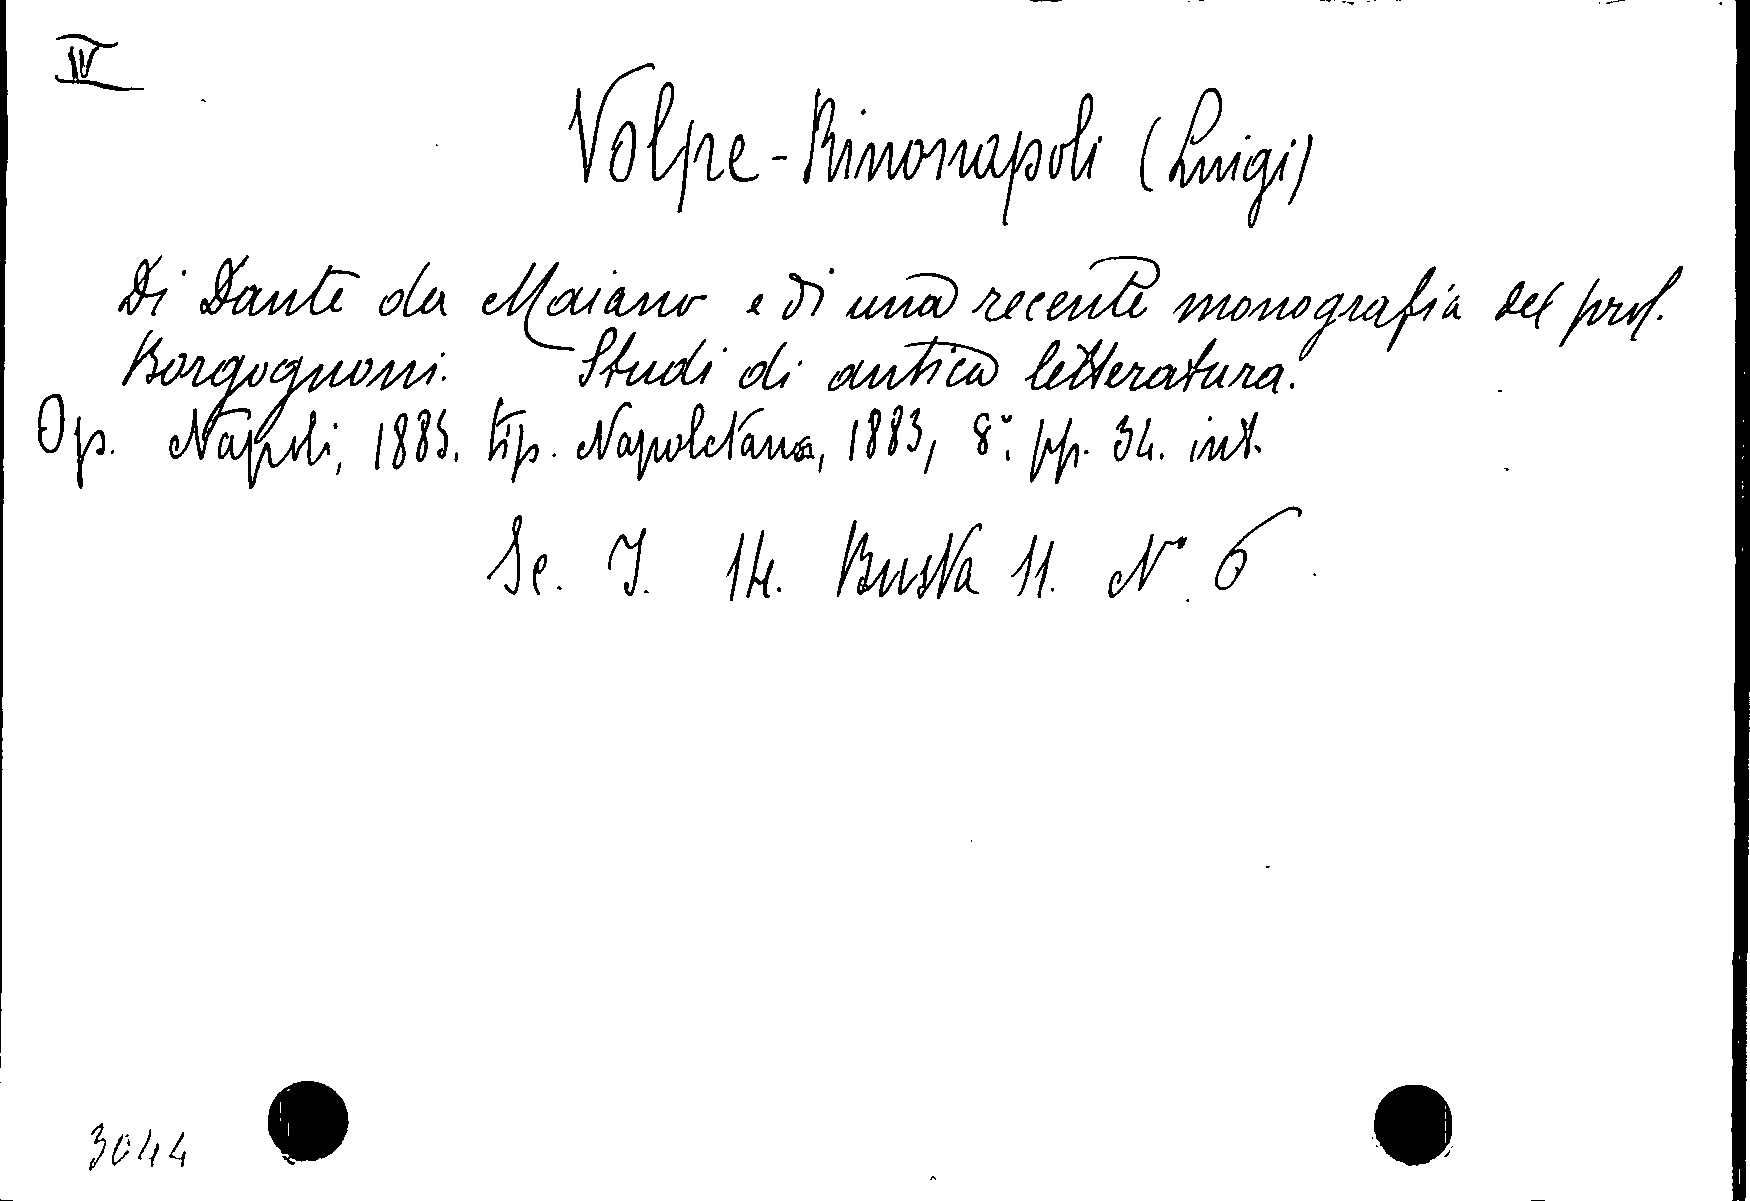 IV
Volpe-Rinonapoli (Luigi)
Di Dante da Maiano e di una recente monografia del prof.
Borgognoni. Studi di antica letteratura.
Op. Napoli, 1883. tip. Napoletana, 1883, 8°. pp. 34. int.
Se. I. 14. Busta 11. N° 6
3044